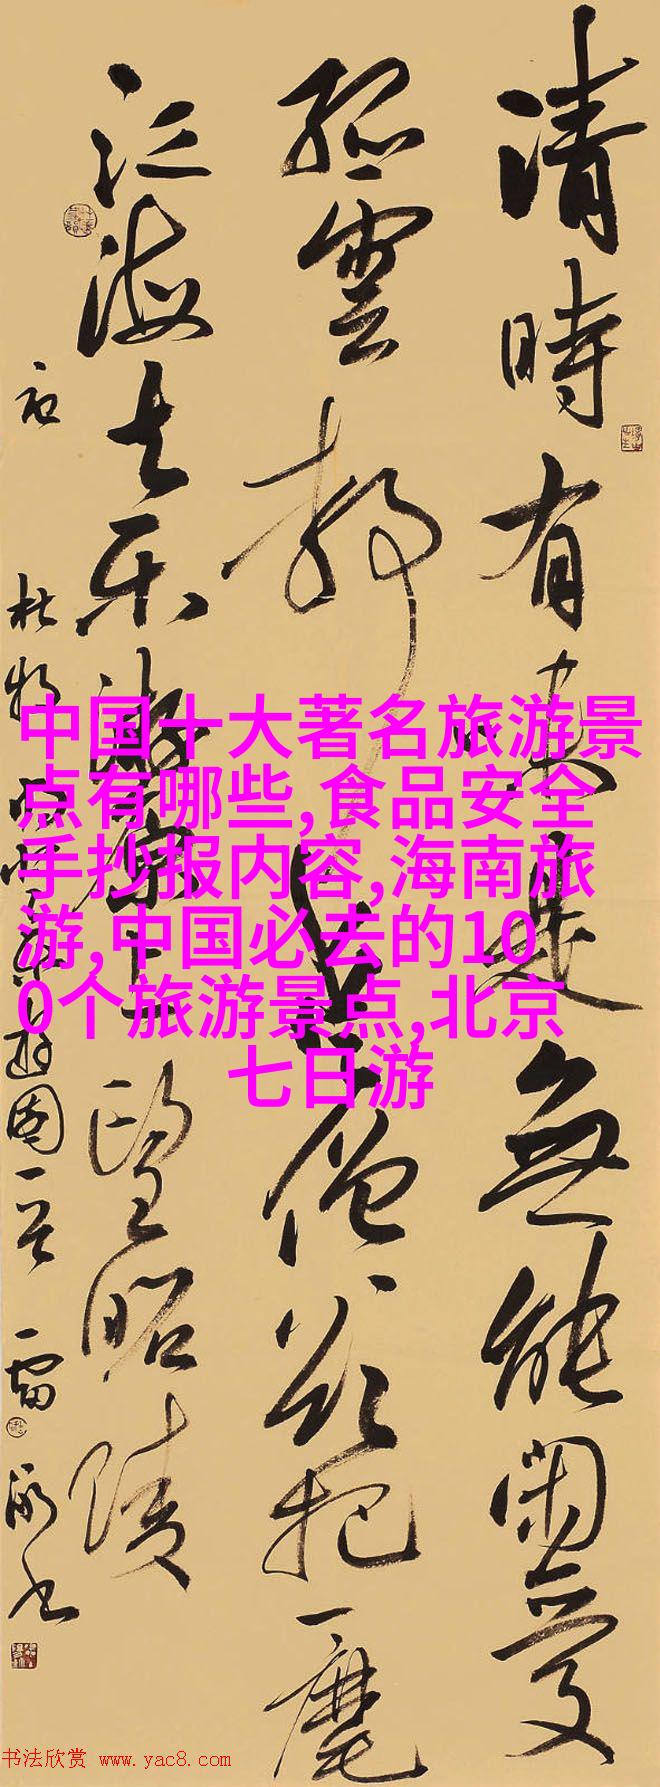 清時有味是無能閑愛
孤雲静愛僧欲把一麾
江海去乐游原上望昭陵
杜牧
中国十大著名旅游景
点有哪些,食品安全
手抄报内容,海南旅
游,中国必去的10
0个旅游景点,北京
七日游
书法欣赏 www.yac8.com